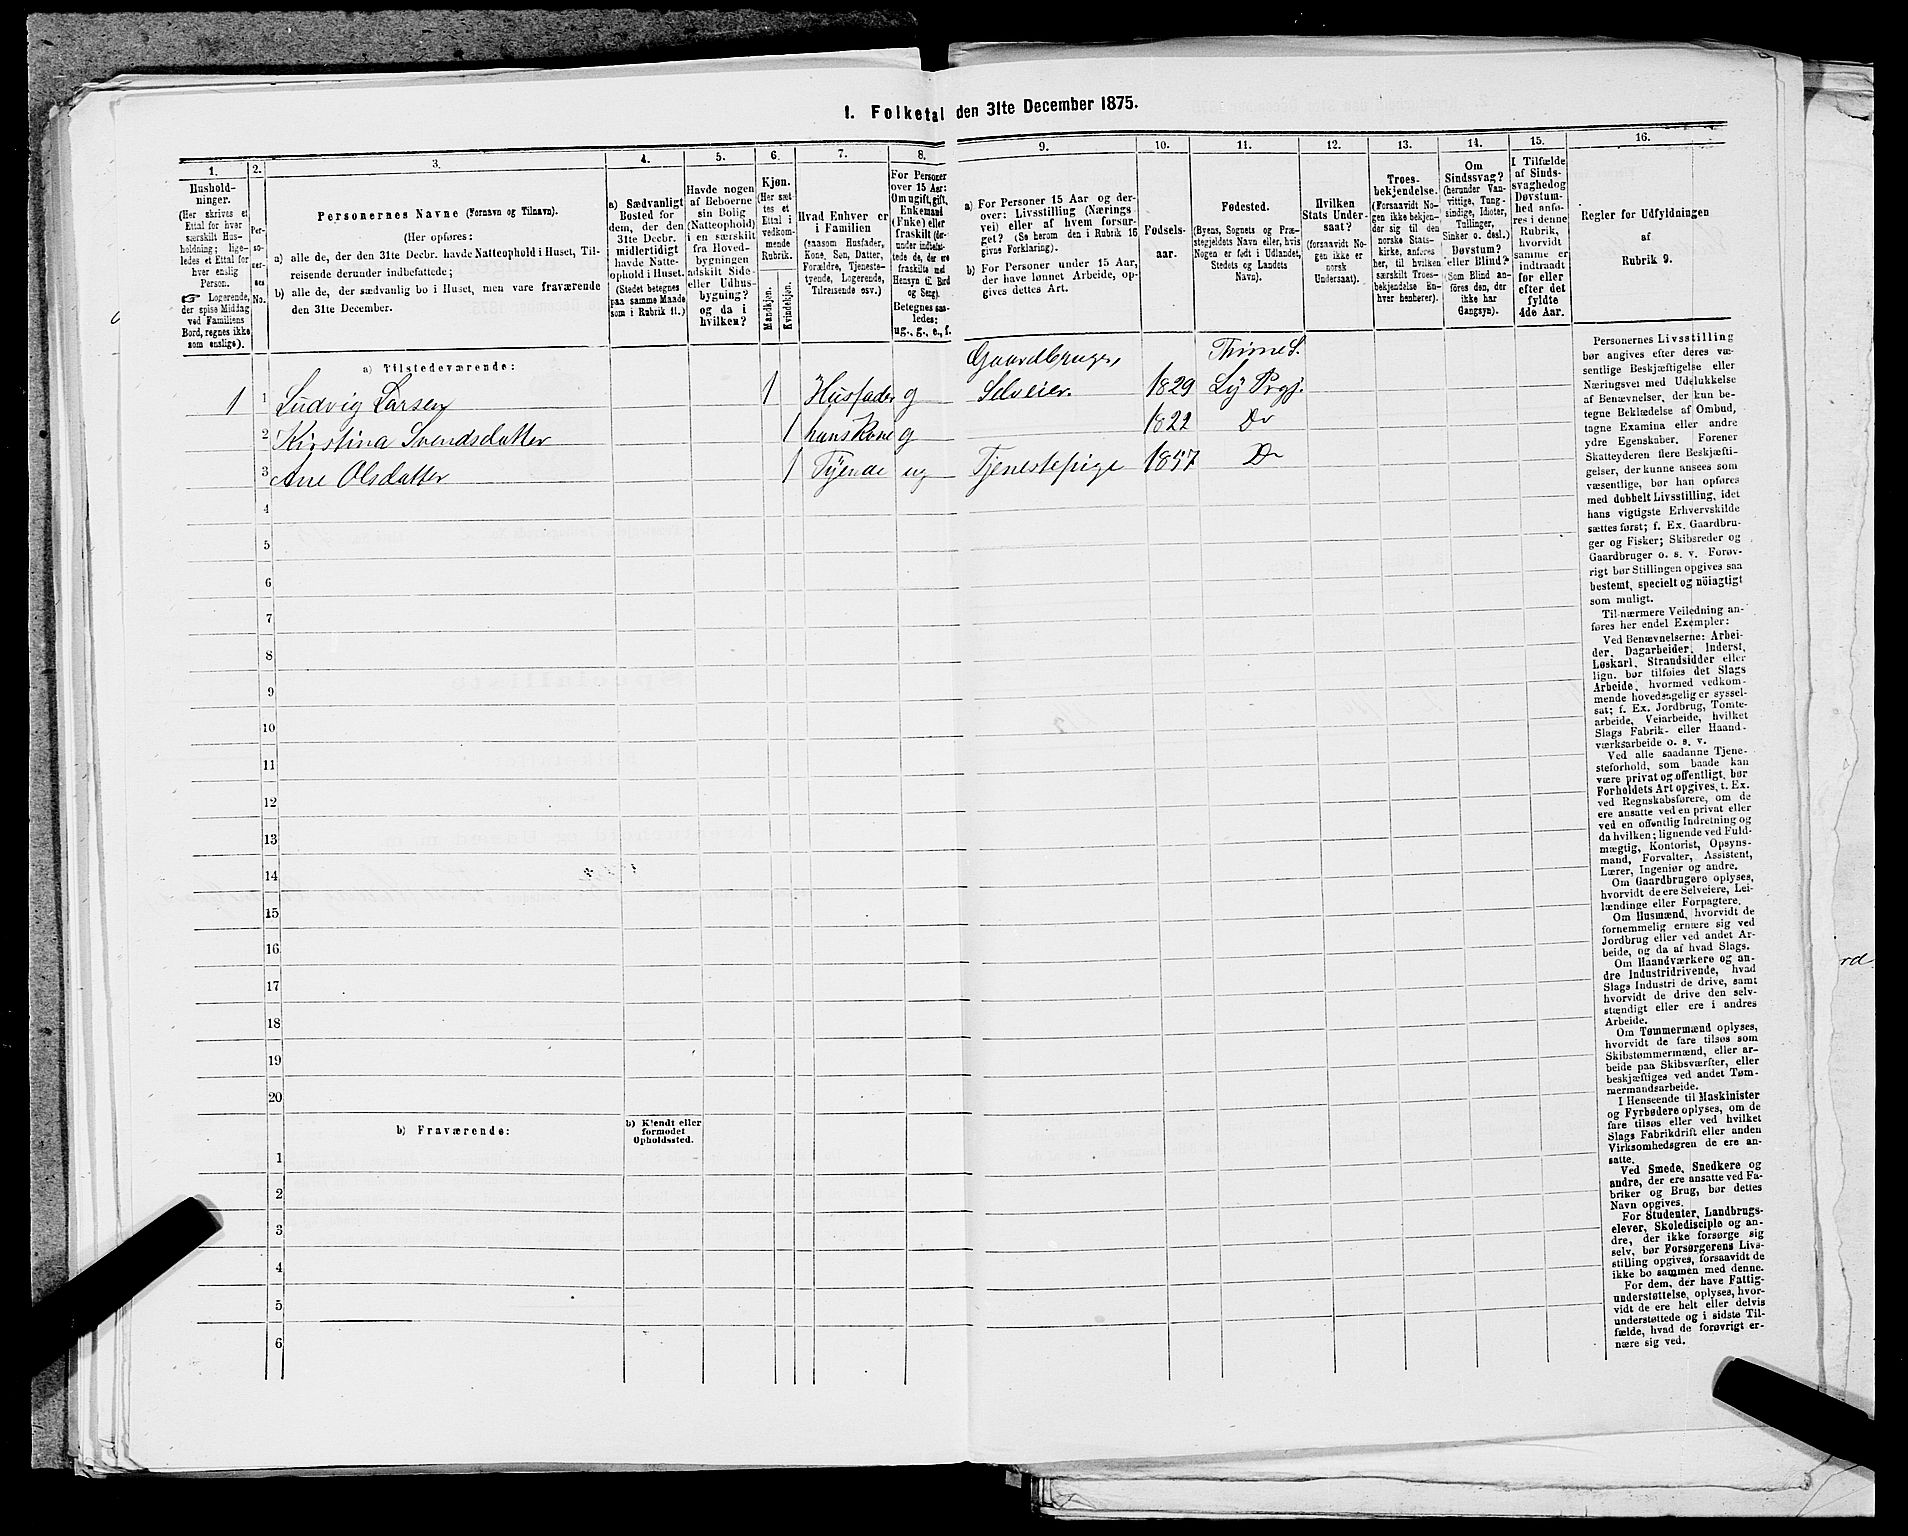 I. Folketal den 31te December 1875.
1.
Hushold-
ninger.
(Her skrives et
Ettal for hver
særskilt Hus-
holdning; lige-
ledes et Ettal for
hver enslig
Person.
☞ Logerende,
der spise Middag
ved Familiens
Bord, regnes ikke
som enslige).
2.
Per-
so-
ner-
nes
No.
3.
Personernes Navne (Fornavn og Tilnavn).
(Her opføres:
a) alle de, der den 31te Decbr. havde Natteophold i Huset, Til-
reisende derunder indbefattede;
b) alle de, der sædvanlig bo i Huset, men vare fraværende
den 31te December.
4.
a) Sædvanligt
Bosted for
dem, der den
31te Decbr.
midlertidigt
havde Natte-
ophold i Huset.
(Stedet betegnes
paa samme Maade
som i Rubrik 11.)
5.
Havde nogen
af Beboerne
sin Bolig
(Natteophold)
i en særskilt
fra Hoved-
bygningen
adskilt Side-
eller Udhus-
bygning?
og da i
hvilken?
6.
Kjøn.
(Her sæt-
tes et
Ettal i
vedkom-
mende
Rubrik.
Mandkjøn.
Kvindekjøn.
7.
Hvad Enhver er
i Familien
(saasom Husfader,
Kone, Søn, Datter,
Forældre, Tjeneste-
tyende, Logerende,
Tilreisende osv.)
8.
For Personer
over 15 Aar:
Om ugift, gift,
Enkemand
(Enke) eller
fraskilt (der-
under indbefat-
tede de, der ere
fraskilte med
Hensyn til Bord
og Seng).
Betegnes saa-
ledes:
ug., g., e., f.
9.
a) For Personer 15 Aar og der-
over: Livsstilling (Nærings
vei) eller af hvem forsør-
get? (Se herom den i Rubrik 16
givne Forklaring).
b) For Personer under 15 Aar,
der have lønnet Arbeide, op-
gives dettes Art.
10.
Fødsels-
aar.
11.
Fødested.
(Byens, Sognets og Præ-
stegjeldets Navn eller, hvis
Nogen er født i Udlandet,
Stedets og Landets
Navn).
12.
Hvilken
Stats Under-
saat?
(forsaavidt No-
gen ikke er
norsk
Undersaat).
13.
Troes-
bekjendelse.
(Forsaavidt No-
gen ikke bekjen-
der sig til den
norske Stats-
kirke, anføres
her, til hvilken
særskilt Troes-
bekjendelse En-
hver henhører).
14.
Om
Sindssvag?
(herunder Van-
vittige, Tung-
sindige, Idioter,
Tullinger,
Sinker o. desl.)
Døvstum?
eller Blind?
(Som Blind an-
føres den, der
ikke har
Gangsyn).
15.
I Tilfælde
af Sinds-
svaghed og
Døvstum-
hed anfø-
res i denne
Rubrik,
hvorvidt
samme er
indtraadt
før eller
efter det
fyldte
4de Aar.
16.
Regler for Udfyldningen
af
Rubrik 9.
a) Tilstedeværende:
Gaardbruger, Thime S.
1 1 Ludvig Larsen 1 Husfader g Selveier. 1829 Ly Prgj.
2 Kirstina Svendsdatter 1 hans Kone g 1822 Do
3 Ane Olsdatter 1 Tyende ug Tjenestepige 1857 Do
4
5
6
7
8
9
10
11
12
13
14
15
16
17
18
19
20
b) Fraværende:
b) Kjendt eller
formodet
Opholdssted.
1
2
3
4
5
6
Personernes Livsstilling
bør angives efter deres væ-
sentlige Beskjæftigelse eller
Næringsvei med Udelukkelse
af Benævnelser, der kun be-
tegne Beklædelse af Ombud,
tagne Examina eller andre
ydre Egenskaber. Forener
Skatteyderen flere Beskjæfti-
gelser, der kunne ansees som
væsentlige, bør han opføres
med dobbelt Livsstilling, idet
hans vigtigste Erhvervskilde
sættes først; f. Ex. Gaardbru-
ger og Fisker; Skibsreder og
Gaardbruger o. s. v. Forøv-
rigt bør Stillingen opgives saa
bestemt, specielt og nöiagtigt
som muligt.
Til nærmere Veiledning an-
føres her endel Exempler:
Ved Benævnelserne: Arbei-
der, Dagarbeider, Inderst,
Løskarl, Strandsidder eller
lign. bør tilføies det Slags
Arbeide, hvormed vedkom-
mende hovedsagelig er syssel-
sat; f. Ex. Jordbrug, Tomte-
arbeide, Veiarbeide, hvilket
Slags Fabrik- eller Haand-
værksarbeide o. s. v.
Ved alle saadanne Tjene-
steforhold, som baade kan
være privat og offentligt, bør
Forholdets Art opgives, t. Ex.
ved Regnskabsførere, om de
ere ansatte ved en privat eller
ved en offentlig Indretning og
da hvilken; lignende ved Fuld-
mægtig, Kontorist, Opsyns-
mand, Forvalter, Assistent,
Lærer, Ingeniør og andre.
Om Gaardbrugere oplyses,
hvorvidt de ere Selveiere, Lei-
lændinge eller Forpagtere.
Om Husmænd, hvorvidt de
fornemmelig ernære sig ved
Jordbrug eller ved andet Ar-
beide, og da af hvad Slags.
Om Haandværkere og an-
dre Industridrivende, hvad
Slags Industri de drive, samt
hvorvidt de drive den selv-
stændigt eller ere i andres
Arbeide.
Om Tømmermænd oplyses,
hvorvidt de fare tilsøs som
Skibstømmermænd, eller ar-
beide paa Skibsværfter, eller
beskjæftiges ved andet Tøm-
mermandsarbeide.
I Henseende til Maskinister
og Fyrbødere oplyses, om de
fare tilsøs eller ved hvilket
Slags Fabrikdrift eller anden
Virksomhedsgren de ere an-
satte.
Ved Smede, Snedkere og
andre, der ere ansatte ved Fa-
briker og Brug, bør dettes
Navn opgives.
For Studenter, Landbrugs-
elever, Skoledisciple og an-
dre, der ikke forsørge sig
selv, bør Forsørgerens Livs-
stilling opgives, forsaavidt de
ikke bo sammen med denne.
For dem, der have Fattig-
understøttelse, oplyses, hvor-
vidt de ere helt eller delvis
understøttede og i sidste Til-
fælde, hvad de forøvrigt er-
nære sig ved.